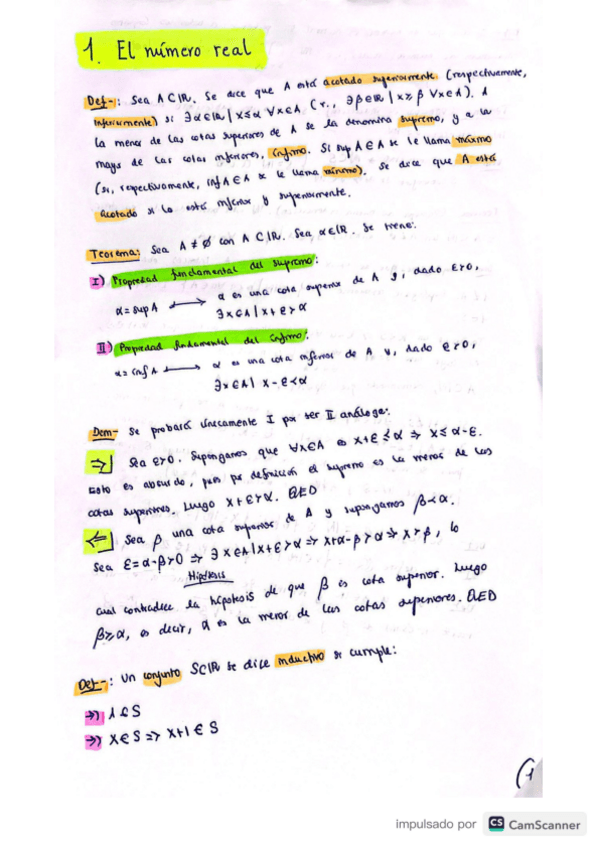 1. El número real
Def-: Sea A⊂ℝ. Se dice que A está acotado superiormente (respectivamente,
inferiormente) si ∃α∈ℝ | x≤α ∀x∈A (r., ∃β∈ℝ | x≥β ∀x∈A). A
la menor de las cotas superiores de A se la denomina supremo, y a la
mayor de las cotas inferiores, ínfimo. Si sup A∈A se le llama máximo
(si, respectivamente, inf A∈A se le llama mínimo). Se dice que A está
acotado si lo está inferior y superiormente.
Teorema: Sea A≠∅ con A⊂ℝ. Sea α∈ℝ. Se tiene:
I) Propiedad fundamental del supremo:
α=sup A ⟷ α es una cota superior de A y, dado ε>0,
∃x∈A | x+ε>α
II) Propiedad fundamental del ínfimo:
α=inf A ⟷ α es una cota inferior de A y, dado ε>0,
∃x∈A | x-ε<α
Dem- Se probará únicamente I por ser II análoga:
⇒] Sea ε>0. Supongamos que ∀x∈A es x+ε≤α ⇒ x≤α-ε.
Esto es absurdo, pues por definición el supremo es la menor de las
cotas superiores. Luego x+ε>α. QED
⇐] Sea β una cota superior de A y supongamos β<α.
Sea ε=α-β>0 ⇒ ∃x∈A | x+ε>α ⇒ x+α-β>α ⇒ x>β, lo
Hipótesis
cual contradice la hipótesis de que β es cota superior. Luego
β≥α, es decir, α es la menor de las cotas superiores. QED
Def-: Un conjunto S⊂ℝ se dice inductivo si cumple:
→) 1∈S
→) x∈S ⇒ x+1∈S
(1
impulsado por CS CamScanner